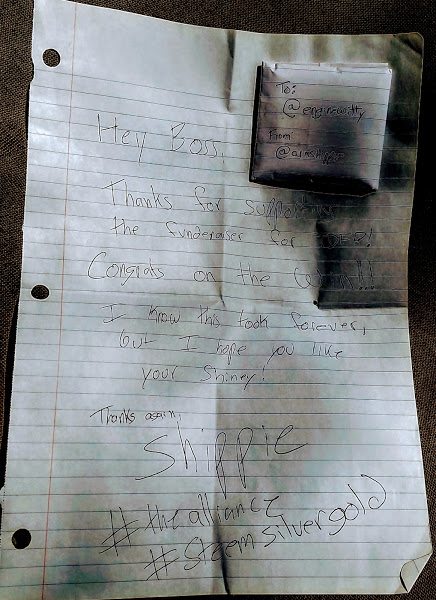 To:
@enginewitty
From:
Hey Boss,
Thanks for
the fundraiser for
Congrats on the
I know this took forever,
but I hope you like
your Shiney!
Thanks again,
Shippie
#thealliance
#steemsilvergold